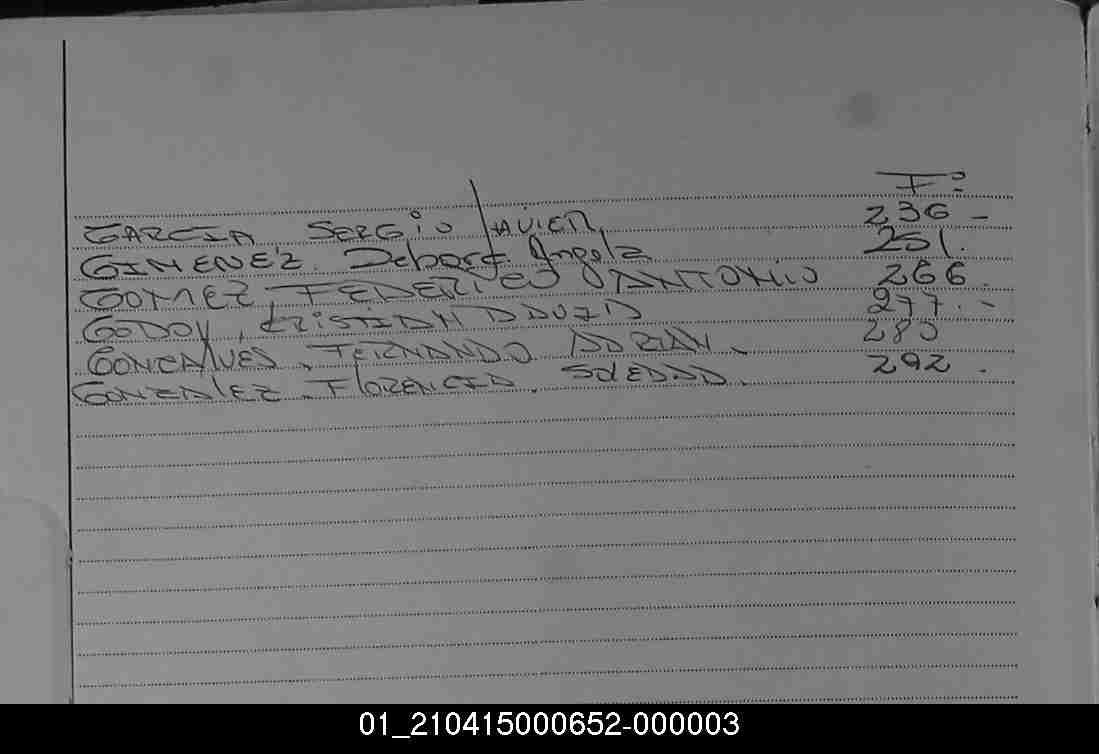 Fº
GARCIA, SERGIO JAVIER 236 -
GIMENEZ. Debora Angela 251.
GOMEZ, FEDERICO ANTONIO 266.
GODOY, CRISTIAN DAVID 277.-
GONCALVES, FERNANDO ADRIAN. 283
GONZALEZ. FLORENCIA. SOLEDAD. 292.
01_210415000652-000003